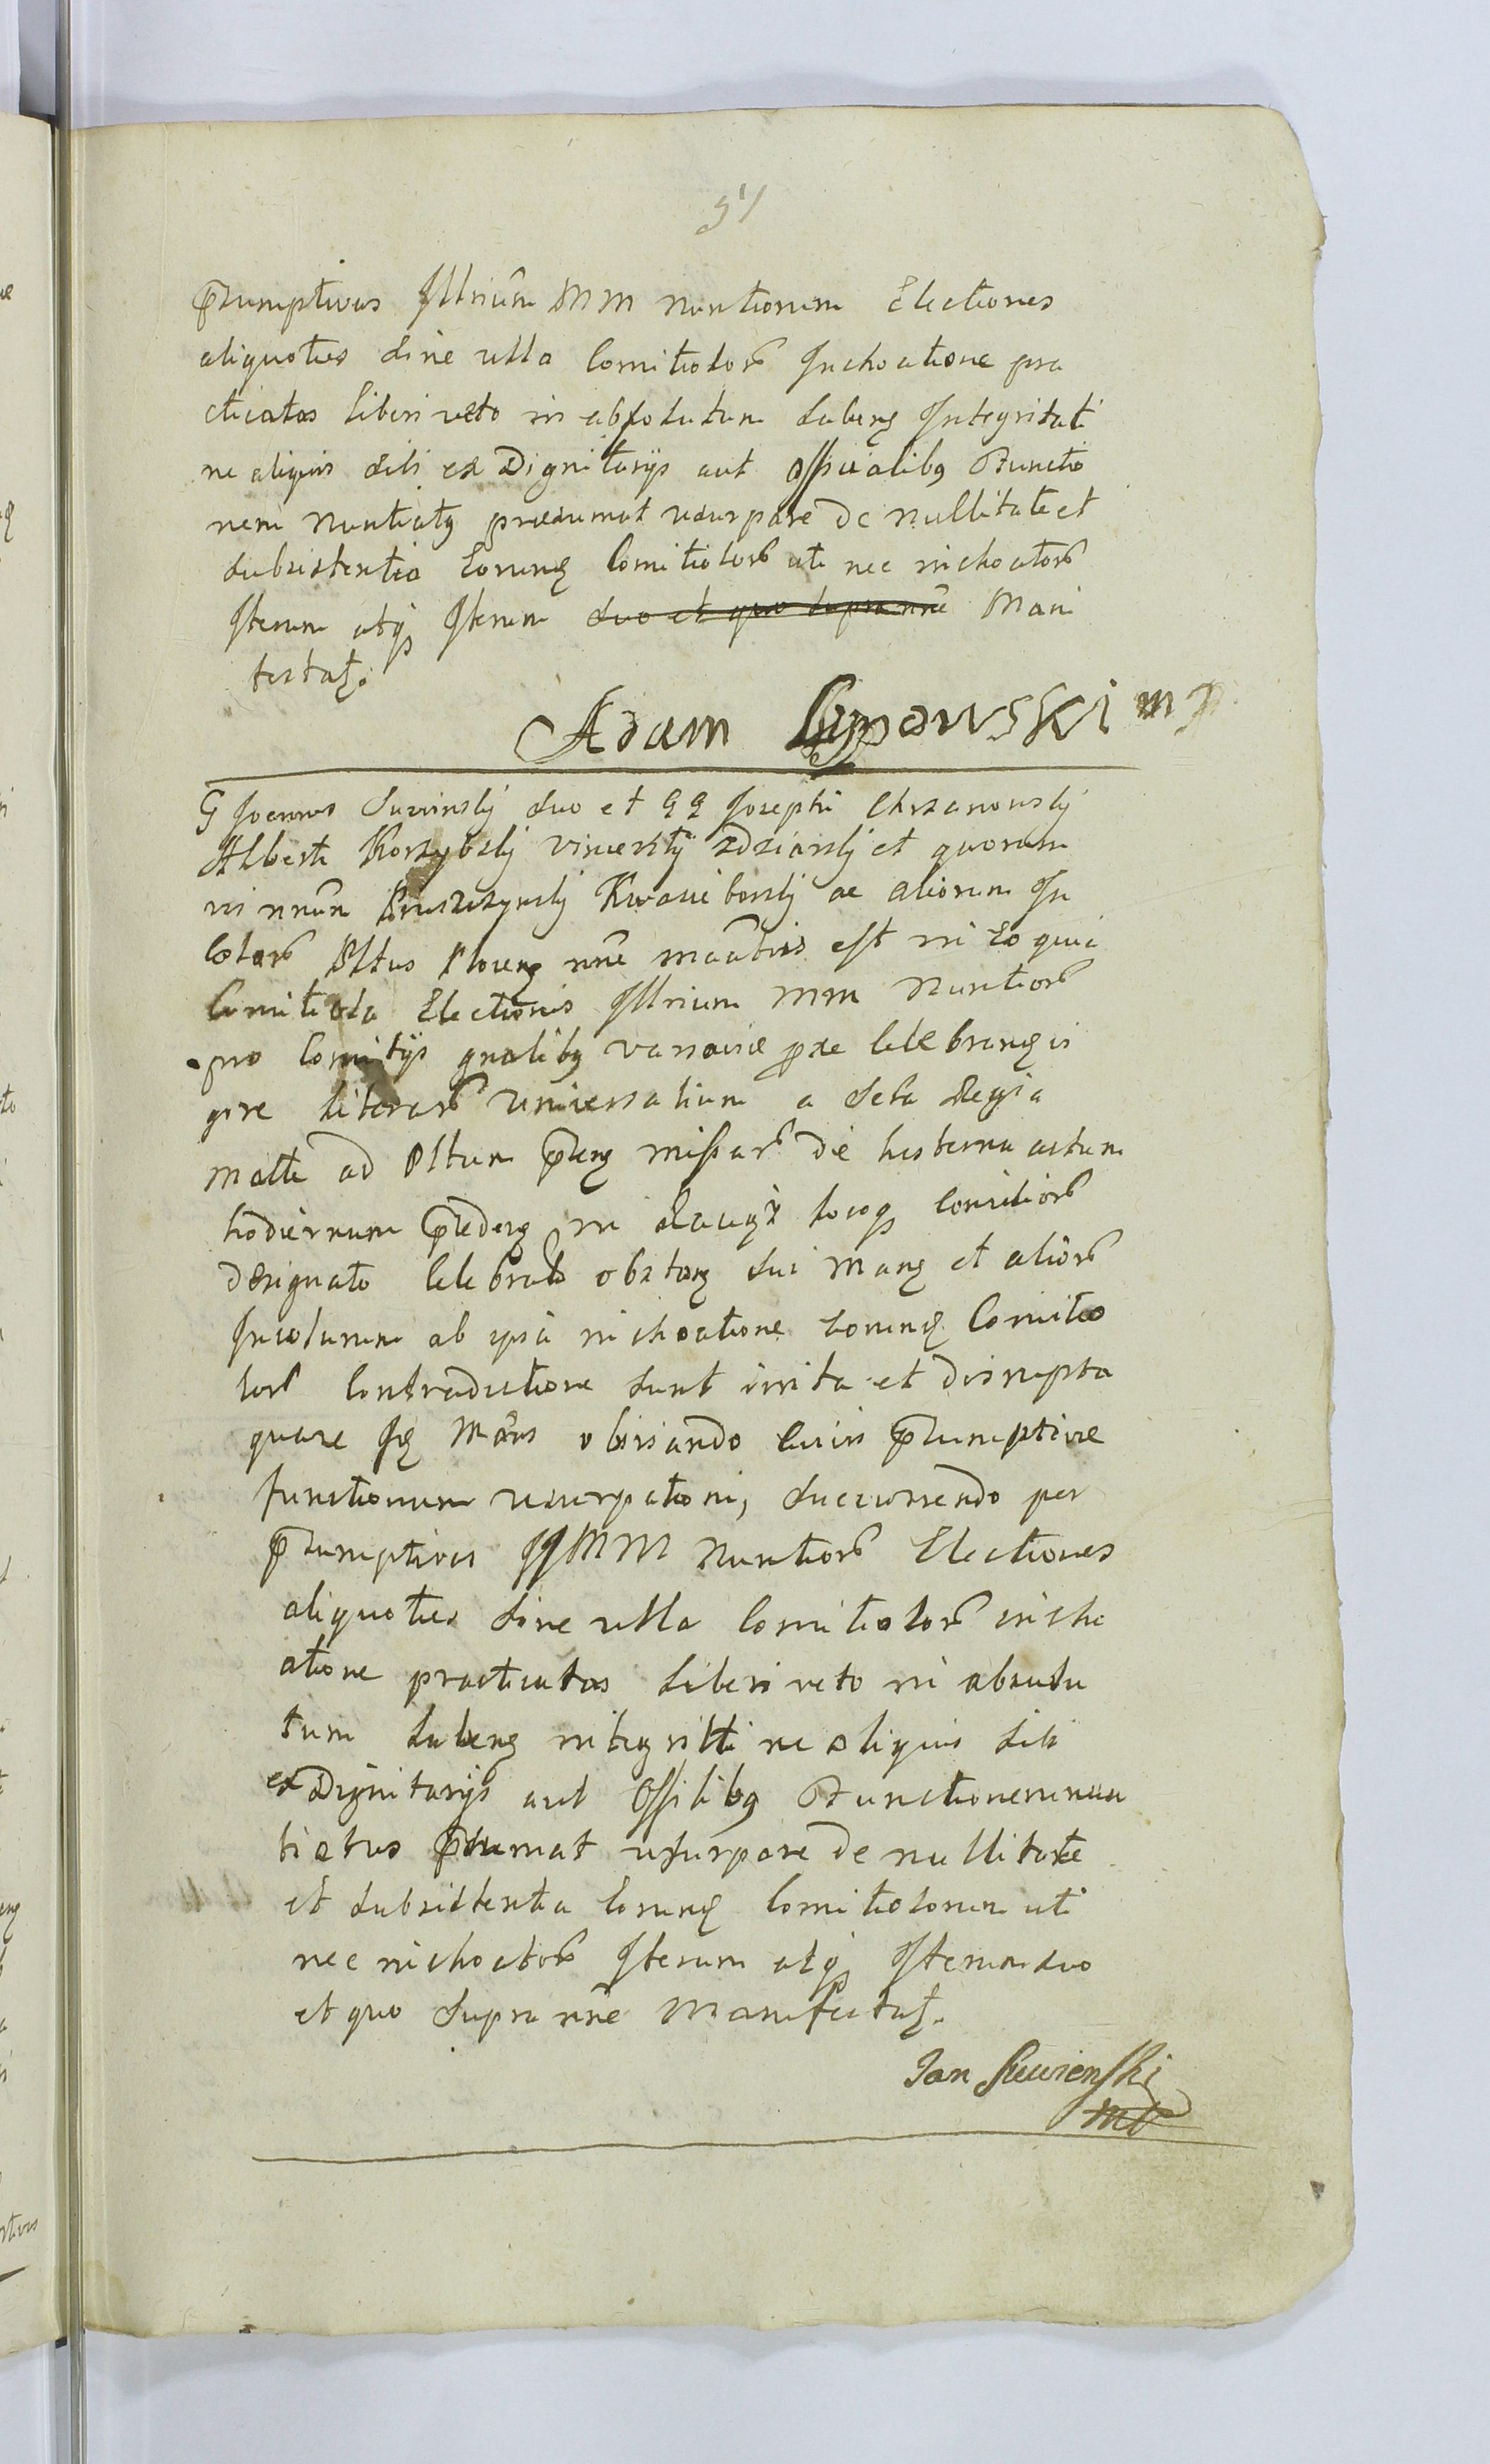 51
p̄sumptivas Jllrium MM Nuntiorum Electiones
aliquoties sine ulla Comitiolor Inchoatione pra
cticatas Liberi veto in absolutum subeng Integritati
ne aliquis sibi ex Dignitarijs aut Officialibq Functio
nem Nuntiatq praesumat usurpare de Nullitate et
subsistentia Eorunq Comitiolor uti nec inchoator
Iterum atq Iterum suo et quo supra nne Mani
festatq.
Adam Lypowski mp
G Joannes Suwinskj suo et GG Josephi Chrzanowskj
Alberti Korzybskj Vincentij Zdziarskj et quorum
vis nnum Kwasiborskj ac aliorum In
colar Pltus Ploceng nne est in Eo quia
Comitiola Electionis Jllrium MM Nuntior
pro Comitijs gnalibq Varsaviae p̄xe Celebrandis
gore literar Universalium a Scta Regia
Matte ad Pltum p̄teng missar die hesterna actum
hodiernum p̄cedeng in locoq Comitior
designato Celebrata obstang sui Mang et alior
Incolarum ab ipsa inchoatione Eorunq Comitio
lor Contradictione sunt irrita et disrupta
quare Jq Mans obviando Cuivis p̄sumptivae
functionum usurpationi, succurrendo per
p̄sumptivas JJMM Nuntior Electiones
aliquoties sine ulla Comitiolor incho
atione practicatas Liberi veto in absolu
tum subeng integritti ne aliquis sibi
ex Dignitarijs aut Offilibq Functionem nun
tiatus p̄sumat usurpare de nullitate
et subsistentia Eorunq Comitiolorum uti
nec inchoator Iterum atq Iterum suo
et quo supra nne Manifestatq.
Jan Suwienski
mp